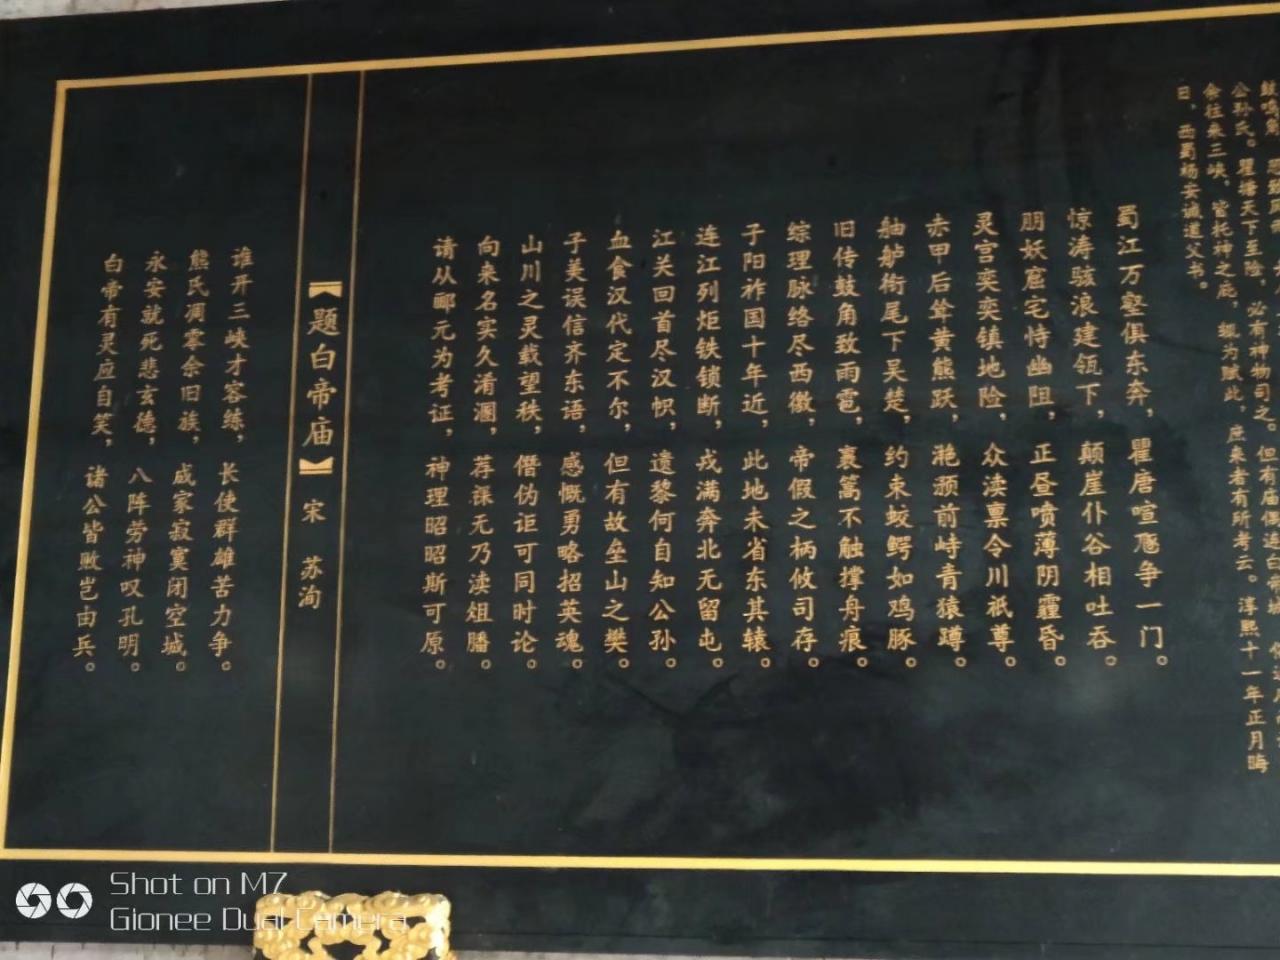 公孙氏。瞿塘天下至险，必有神物司之。但有庙偪近白帝城，
余往来三峡，皆托神之庇，辄为赋此，庶来者有所考云。淳熙十一年正月晦
日，西蜀杨安诚道父书。
蜀江万壑俱东奔，瞿唐喧豗争一门。
惊涛骇浪建瓴下，颠崖仆谷相吐吞。
朋妖窟宅恃幽阻，正昼喷薄阴霾昏。
灵宫奕奕镇地险，众渎禀令川祇尊。
赤甲后耸黄熊跃，滟滪前峙青猿蹲。
舳舻衔尾下吴楚，约束蛟鳄如鸡豚。
旧传鼓角致雨雹，裹篙不触撑舟痕。
综理脉络尽西徼，帝假之柄攸司存。
子阳祚国十年近，此地未省东其辕。
连江列炬铁锁断，戎满奔北无留屯。
江关回首尽汉帜，遗黎何自知公孙。
血食汉代定不尔，但有故垒山之樊。
子美误信齐东语，感慨勇略招英魂。
山川之灵载望秩，僭伪讵可同时论。
向来名实久淆溷，荐祼无乃渎俎膰。
请从郦元为考证，神理昭昭斯可原。
【题白帝庙】 宋 苏洵
谁开三峡才容练，长使群雄苦力争。
熊氏凋零余旧族，成家寂寞闭空城。
永安就死悲玄德，八阵劳神叹孔明。
白帝有灵应自笑，诸公皆败岂由兵。
Shot on M7
Gionee Dual Camera